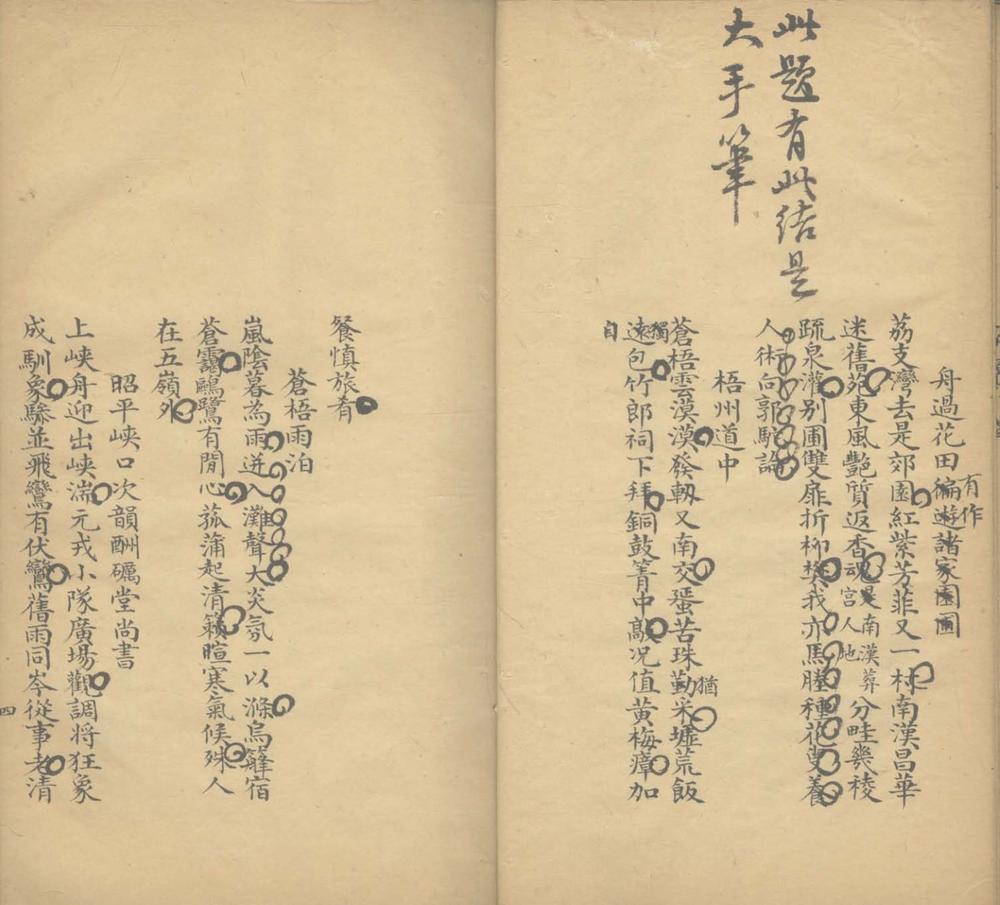 此題有此結是
大手筆
舟過花田徧遊諸家園圃
有作
荔支灣去是郊園紅紫芳菲又一村南漢昌華
迷舊苑東風艷質返香魂是南漢葬宮人地分畦幾稜
疏泉灌別圃雙扉折柳樊我亦馬塍種花叟養
人術向郭駝論
梧州道中
猶
蒼梧雲漠漠發軔又南交蜑苦珠勤采墟荒飯
獨
遠包竹郎祠下拜銅鼓箐中敲况值黃梅瘴加
自
餐慎旅肴
蒼梧雨泊
嵐陰暮為雨迸入灘聲大炎氛一以滌烏篷宿
蒼靄鷗鷺有閒心菰蒲起清籟暄寒氣候殊人
在五嶺外
昭平峽口次韻酬礪堂尚書
上峽舟迎出峽湍元戎小隊廣場觀調將狂象
成馴象驂並飛鸞有伏鸞舊雨同岑從事老清
四